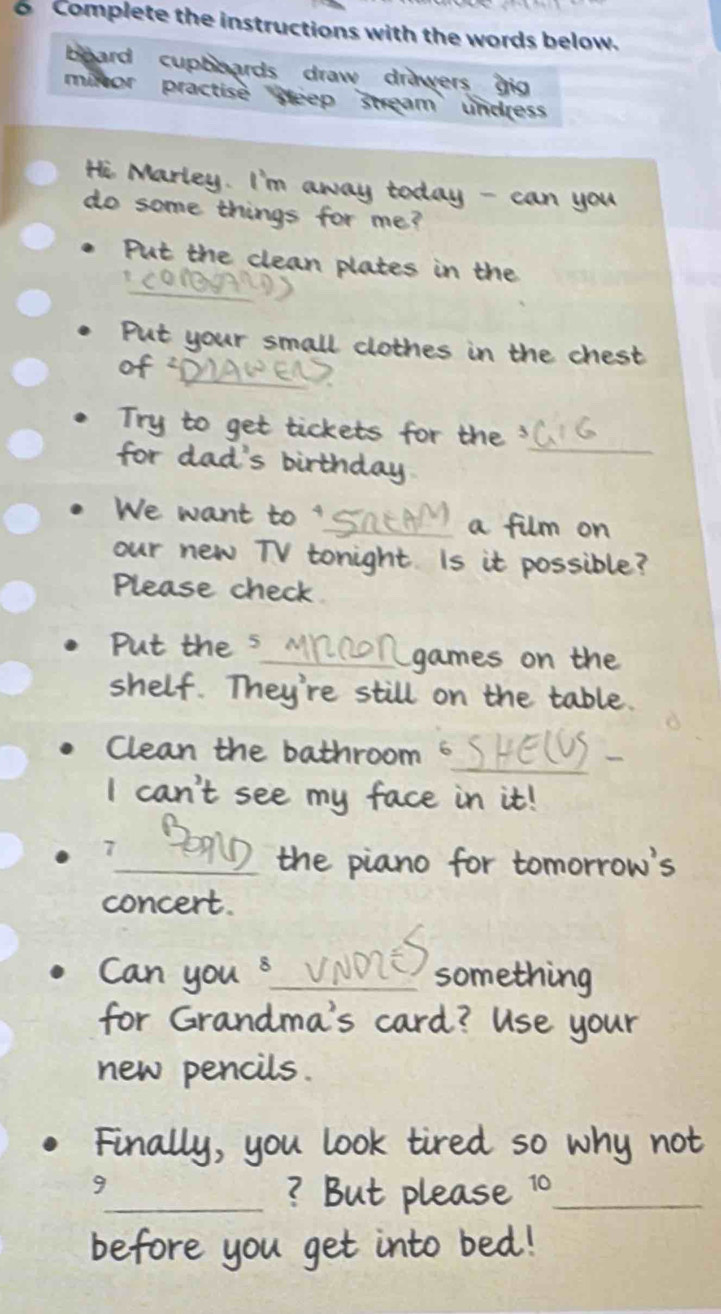 6 Complete the instructions with the words below.
board cupboards draw drawers gig
mirror practise sleep stream undress
Hi Marley. I'm away today – can you
do some things for me?
• Put the clean plates in the
1
• Put your small clothes in the chest
of 2 DRAWERS.
• Try to get tickets for the 3 GIG
for dad's birthday.
• We want to 4 STREAM a film on
our new TV tonight. Is it possible?
Please check.
• Put the 5 games on the
shelf. They're still on the table.
• Clean the bathroom 6 –
I can't see my face in it!
• 7 the piano for tomorrow's
concert.
• Can you 8 something
for Grandma's card? Use your
new pencils.
• Finally, you look tired so why not
9 ? But please 10
before you get into bed!